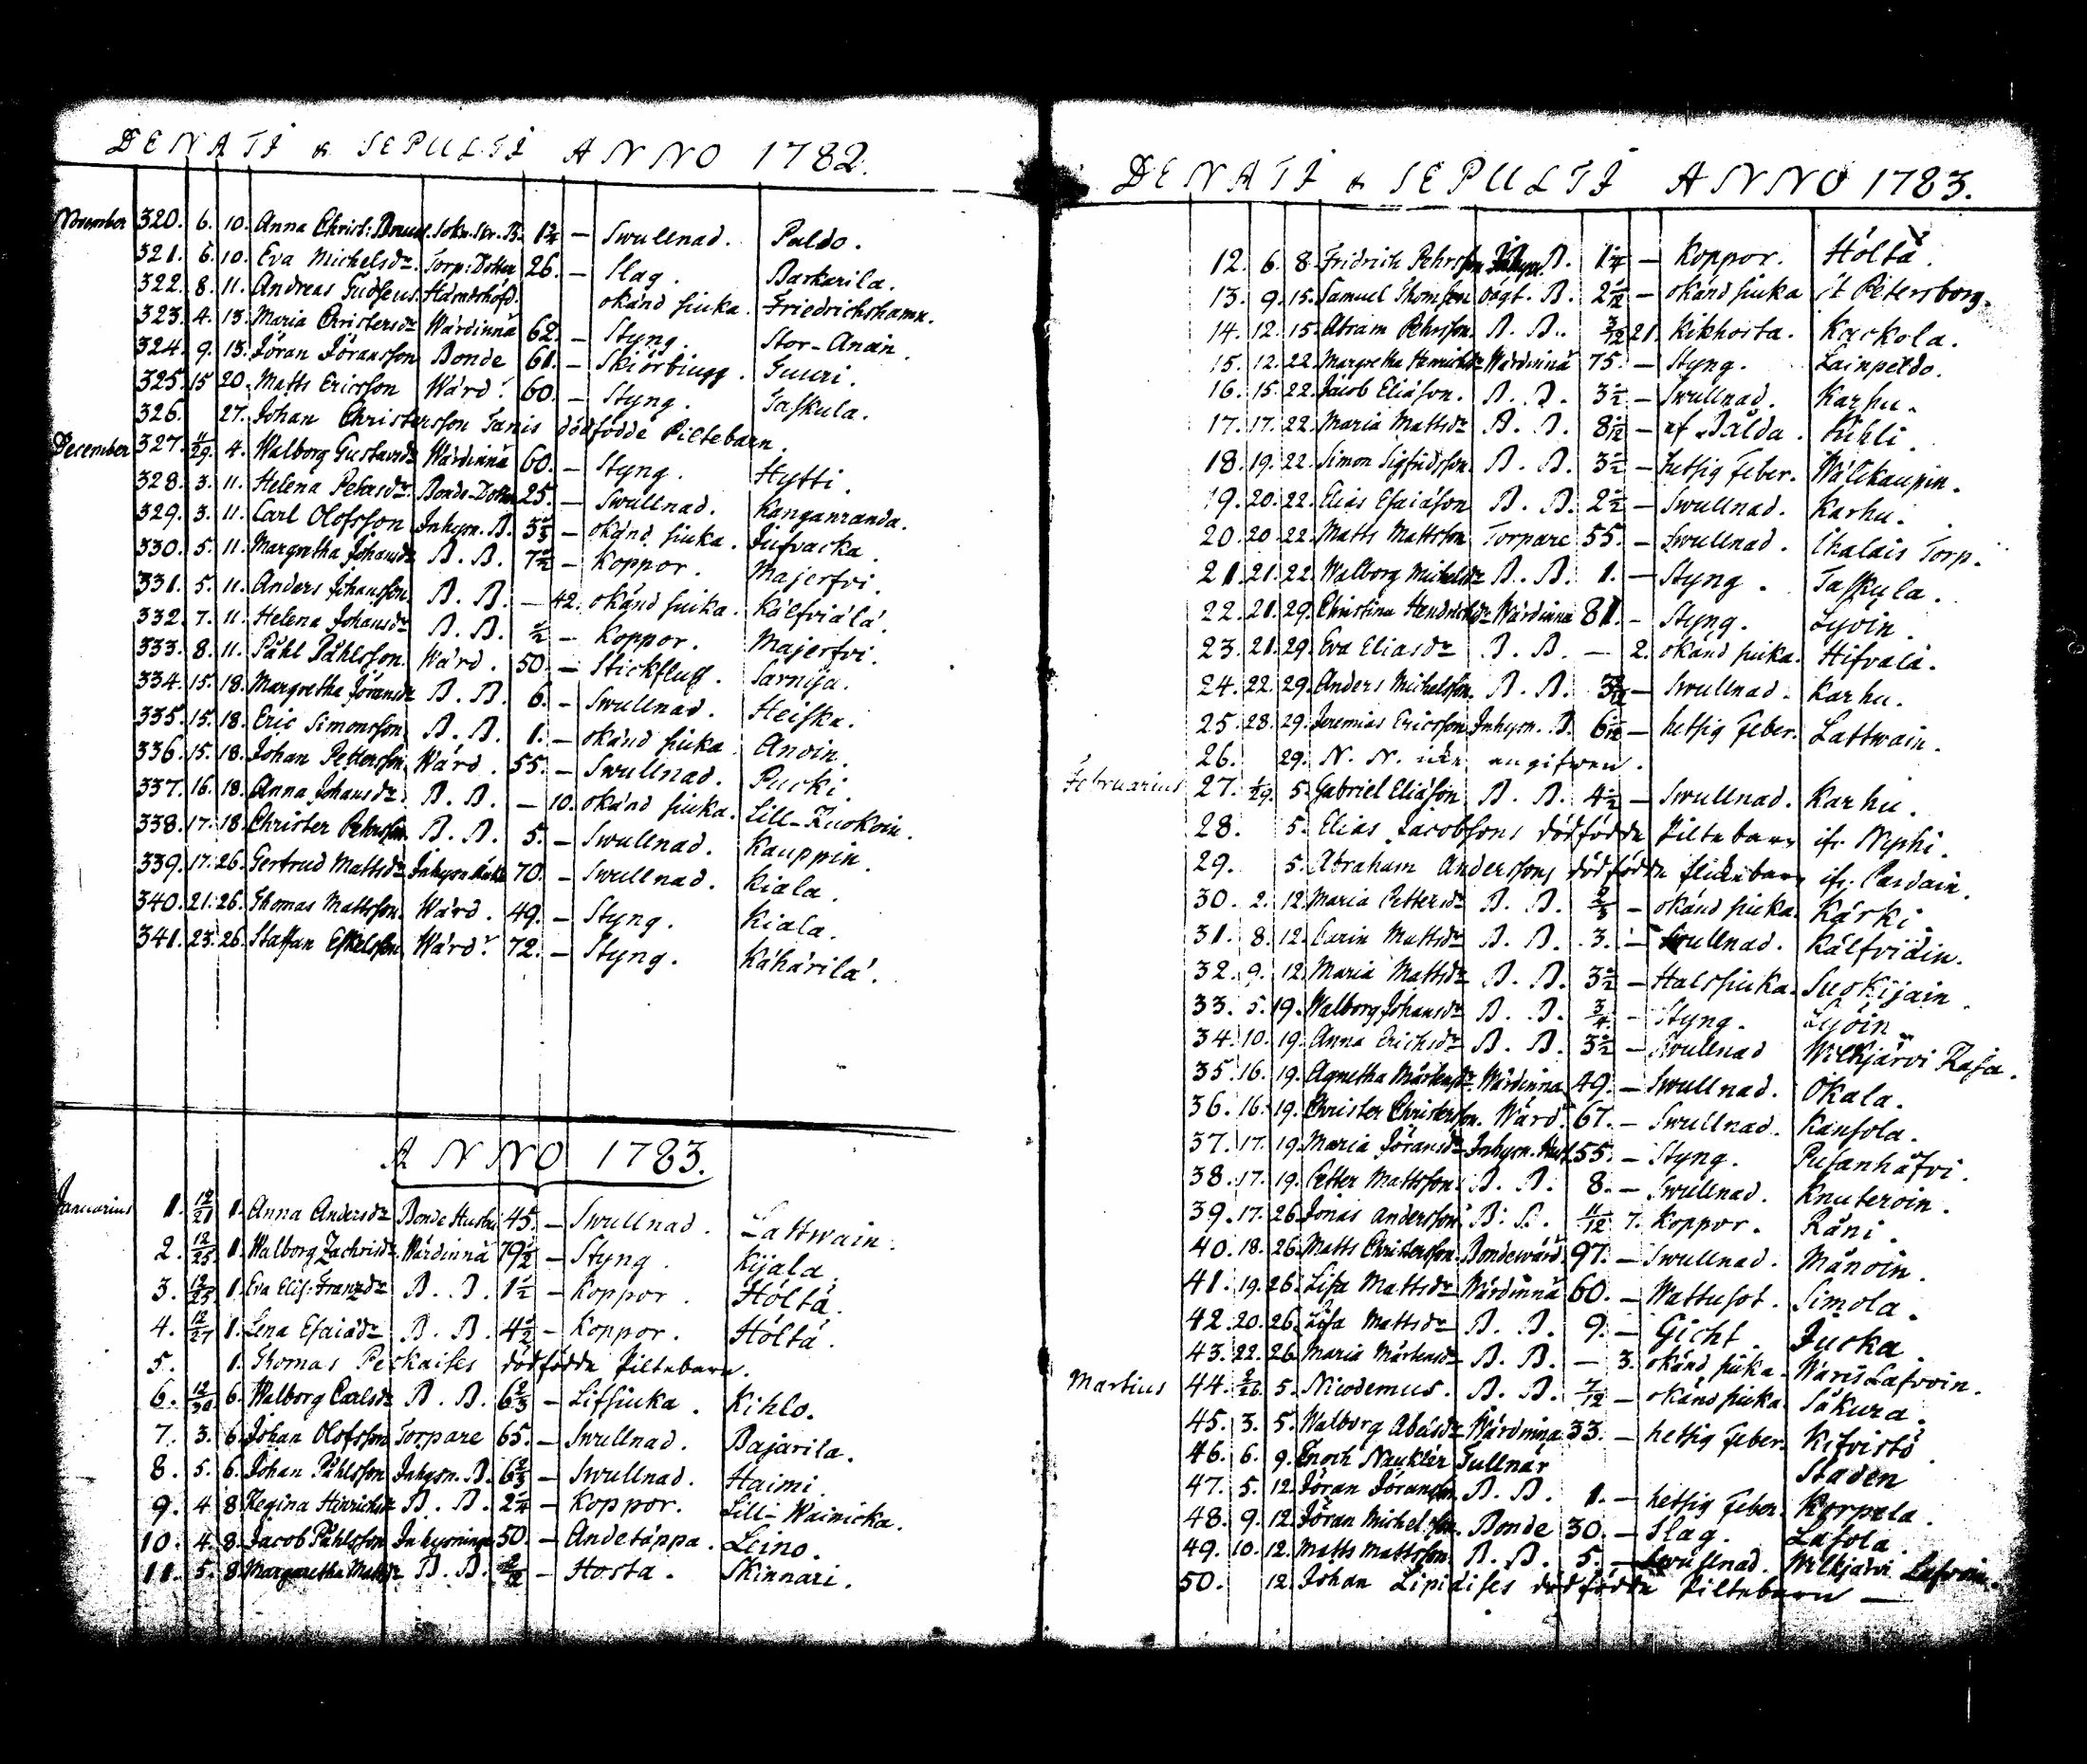 DENATI & SEPULTI ANNO 1782.
November 320. 6. 10. Anna Christ: Sokn. Skr. B. 1 — Swullnad. Paldo.
321. 6. 10. Eva Michelsdr. Torp: Dotter 26. — Slag. Barkarila.
322. 8. 11. Andreas Häradshöfd. okänd siuka. Friedrichshamn.
323. 4. 13. Maria Christersdr Wärdinna 62. — Styng. Stor-Anain.
324. 9. 13. Jöran Jöransson Bonde 61. — Skiörbiugg. Guuri.
325. 15 20. Matts Ericsson Wärd. 60. — Styng. Taskula.
326. 27. Johan Christersson Tanis dödfödde Piltebarn.
December 327. 11/29. 4. Walborg Gustavsdr Wärdinna 60. — Styng. Hytti.
328. 3. 11. Helena Petersdr. Bonde-Dotter 25. — Swullnad. Kanganranda.
329. 3. 11. Carl Olofsson Inhysn. B. 3 — okänd siuka. Jusvacka.
330. 5. 11. Margretha Johansdr B. B. 7 1/2 — Koppor. Majerfvi.
331. 5. 11. Anders Johansson B. B. — 42. okänd siuka. Kälfviälä.
332. 7. 11. Helena Johansdr B. B. 1/2 — Koppor. Majerfvi.
333. 8. 11. Påhl Påhlsson. Wärd. 50. — Stickflug. Sarnija.
334. 15. 18. Margretha Jöransdr B. B. 6. — Swullnad. Heiska.
335. 15. 18. Eric Simonsson B. B. 1. — okänd siuka. Anoin.
336. 15. 18. Johan Pettersson Wärd. 55. — Swullnad. Pucki.
337. 16. 18. Anna Johansdr. B. B. — 10. okänd siuka. Lill-Kuokoin.
338. 17. 18. Christer Pehrsson. B. B. 5. — Swullnad. Kauppin.
339. 17. 26. Gertrud Mattsdr Inhysn Änka 70. — Swullnad. Kiala.
340. 21. 26. Thomas Mattsson. Wärd. 49. — Styng. Kiala.
341. 23. 26. Staffan Eskelsson Wärd. 72. — Styng. Kähärilä.
ANNO 1783.
Januarius 1. 12/21 1. Anna Andersdr Bonde Hustru 45. — Swullnad. Lattwain.
2. 12/25. 1. Walborg Zachrisdr. Wärdinna 79 1/2 — Styng. Kijala.
3. 12/25 1. Eva Elis: Franzdr B. B. 1 1/2 — Koppor. Höltä.
4. 12/27 1. Lena Esaiädr B. B. 4 1/2 — Koppor. Höltä.
5. 1. Thomas Peckaises dödfödda Piltebarn.
6. 12/30 6. Walborg Carlsdr B. B. 6 2/3 — Lifsiuka. Kihlo.
7. 3. 6. Johan Olofsson Torpare 65. — Swullnad. Bajarila.
8. 5. 6. Johan Påhlsson Inhysn. B. 6 2/3 — Swullnad. Haimi.
9. 4 8 Regina Hinrichsdr B. B. 2 1/4 — Koppor. Lill-Wainicka.
10. 4. 8. Jacob Påhlsson Inhysninge 50. — Andetäppa. Leino.
11. 5. 8. Margaretha Mattsdr B. B. — Hosta. Skinnari.
DENATI & SEPULTI ANNO 1783.
12. 6. 8. Fridrich Pehrsson Inhysn. B. 1 1/4 — Koppor. Höltä.
13. 9. 15. Samuel Thomsson B. 2 — okänd siuka St Petersborg.
14. 12. 15. Abram Pehrsson. B. B. 3/12 21. Kikhosta. Kackola.
15. 12. 22. Margretha Henrichsdr Wärdinna 75. — Styng. Lainpeldo.
16. 15. 22. Jacob Eliäson. B. B. 3 1/2 — Swullnad. Karhu.
17. 17. 22. Maria Mattsdr B. B. 8 — af Bålda. Kihli.
18. 19. 22. Simon Sigfridsson. B. B. 3 1/2 — hetsig Feber. Wälikaupin.
19. 20. 22. Elias Esaiäson B. B. 2 1/2 — Swullnad. Karhu.
20. 20. 22. Matts Mattsson Torpare 55. — Swullnad. Ikalais Torp.
21. 21. 22. Walborg Michelsdr B. B. 1. — Styng. Taskula.
22. 21. 29. Christina Hendrichsdr Wärdinna 81. — Styng. Lyöin.
23. 21. 29. Eva Eliasdr B. B. — 2. okänd siuka. Hifvala.
24. 22. 29. Anders Michelsson. B. B. 3 — Swullnad. Karhu.
25. 28. 29. Jeremias Ericsson Inhysn. B. 6 — hetsig Feber. Lattwain.
26. 29. N. N. icke angifwen.
Februarius 27. 1/29. 5. Gabriel Eliäson B. B. 4 1/2 — Swullnad. Karhu.
28. 5. Elias Jacobsons dödfödda Piltebarn ifr. Nyphi.
29. 5. Abraham Anderssons dödfödda flickebarn ifr. Pardain.
30. 2. 12. Maria Pettersdr B. B. 2/3 — okänd siuka. Kärki.
31. 8. 12. Carin Mattsdr B. B. 3. — Swullnad. Kälfviäin.
32. 9. 12. Maria Mattsdr B. B. 3 1/2 — Halssiuka. Suokijain.
33. 5. 19. Walborg Johansdr B. B. 3/4 — Styng. Lyöin.
34. 10. 19. Anna Erichsdr B. B. 3 1/2 — Swullnad Wilkjärvi Kasa.
35. 16. 19. Agnetha Mårtensdr. Wärdinna 49. — Swullnad. Okala.
36. 16. 19. Christer Christersson. Wärd. 67. — Swullnad. Kansola.
37. 17. 19. Maria Jöransdr Inhysn. Hust. 55. — Styng. Pusanhäfvi.
38. 17. 19. Petter Mattsson. B. B. 8. — Swullnad. Knuteroin.
39. 17. 26. Jonas Andersson B. B. 11/12 7. Koppor. Räni.
40. 18. 26. Matts Christersson. Bondewärd. 97. — Swullnad. Mänoin.
41. 19. 26. Lisa Mattsdr Wärdinna 60. — Wattusot. Simola.
42. 20. 26. Lisa Mattsdr B. B. 9. — Gicht. Jucka.
43. 22. 26. Maria Mårtensdr B. B. — 3. okänd siuka. Waris Lafvoin.
Martius 44. 2/26. 5. Nicodemus. B. B. 7/12 — okänd siuka Säkura.
45. 3. 5. Walborg Abelsdr Wärdinna 33. — hetsig Feber. Kifvistö.
46. 6. 9. Enoch Nauklér Tullnär Staden
47. 5. 12. Jöran Jöransson B. B. 1. — hetsig Feber. Korpela.
48. 9. 12. Jöran Michelsson. Bonde 30. — Slag. Lafola.
49. 10. 12. Matts Mattsson. B. B. 5. — Swullnad. Wilkjärvi Lafvoin.
50. 12. Johan Lipiäises dödfödda Piltebarn —